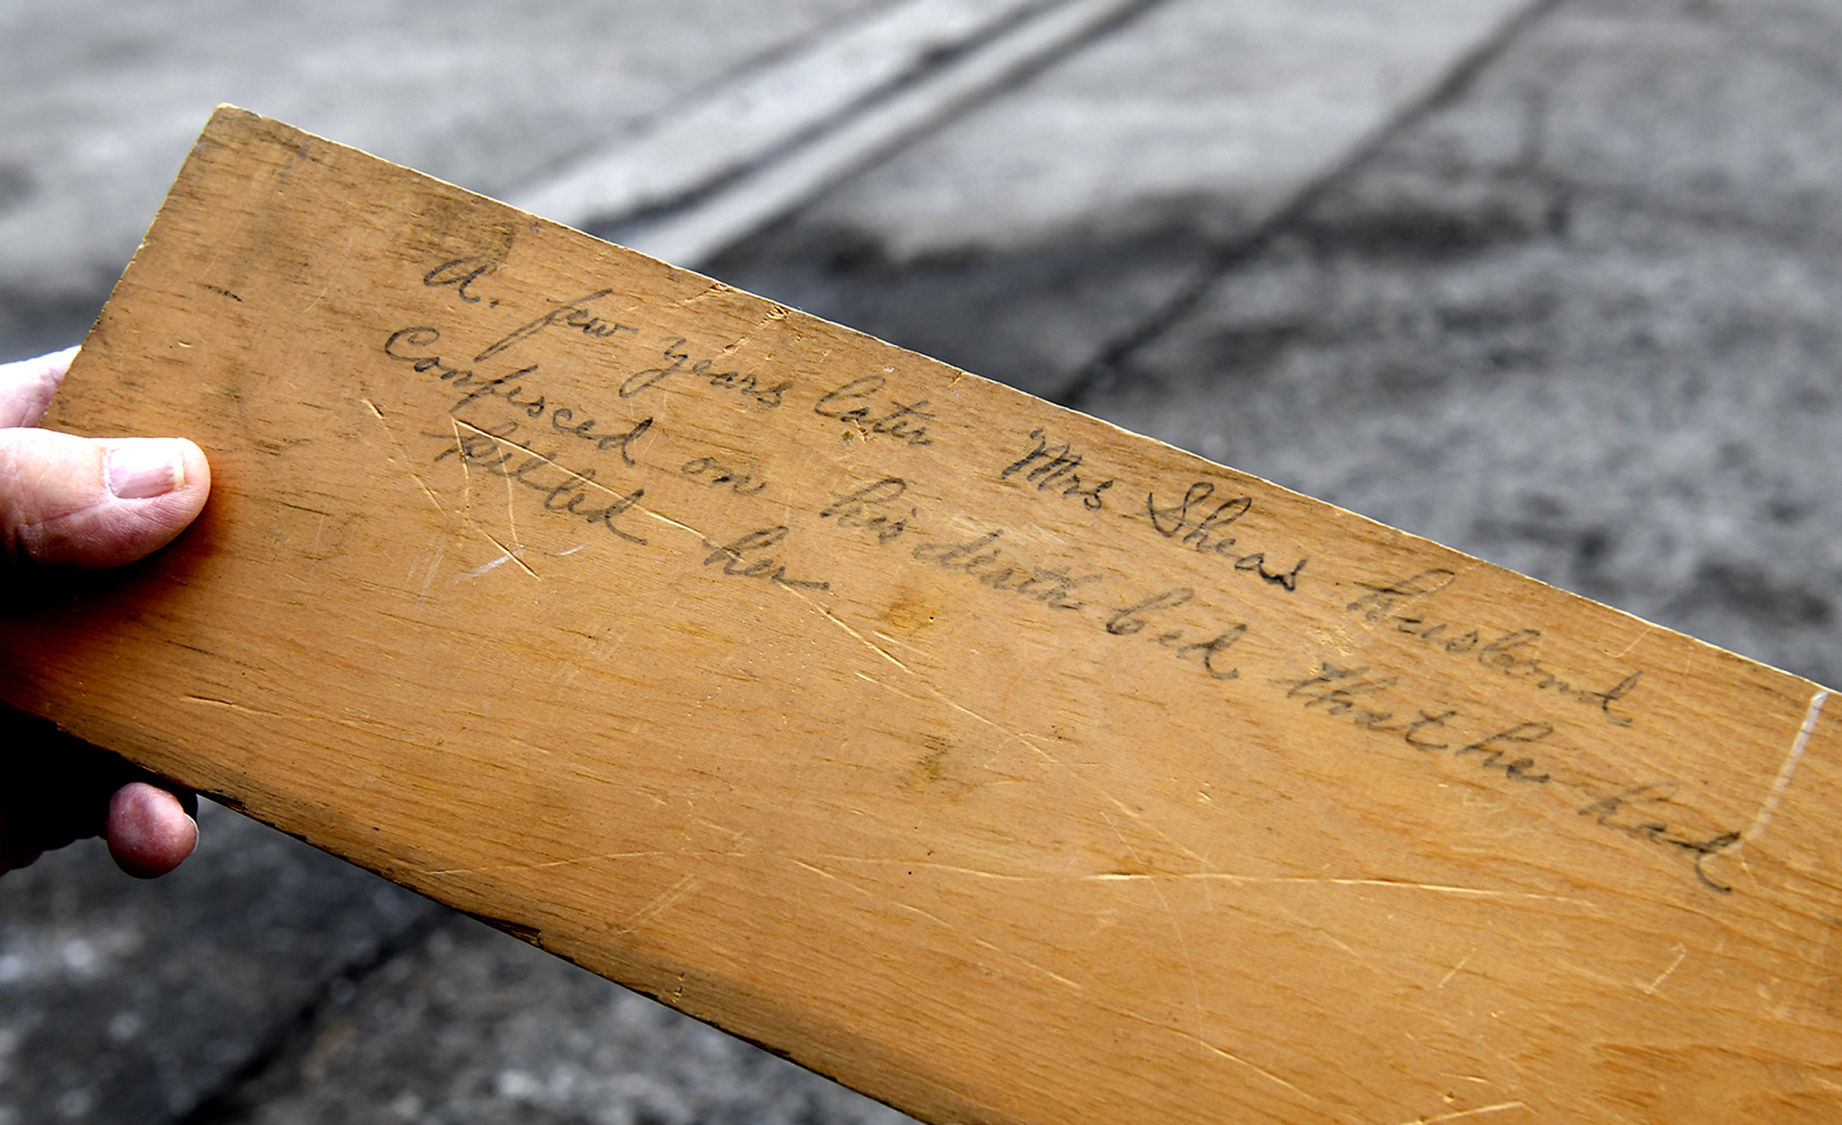 A. few years later Mrs Sheas husband
Confesced on his death bed that he had
killed her